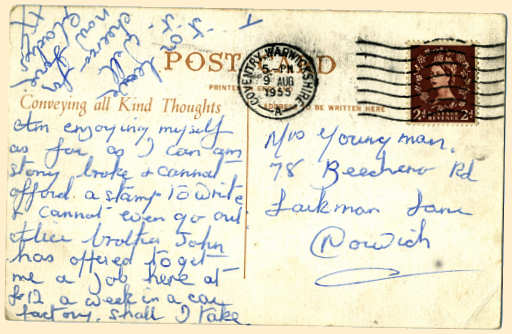 POST CARD
PRINTED IN
Conveying all Kind Thoughts
ADDRESS TO BE WRITTEN HERE
COVENTRY WARWICKSHIRE
5-PM
9 AUG
1955
A
2d 2d
Am enjoying myself
as far as I can am
stony broke & cannot
afford a stamp to write
& cannot even go out
either brother John
has offered to get
me a job here at
£12 a week in a car
factory. shall I take
it or
leave
cheerio for
now
Mrs Youngman.
78 Beecheno Rd
Larkman Lane
Norwich